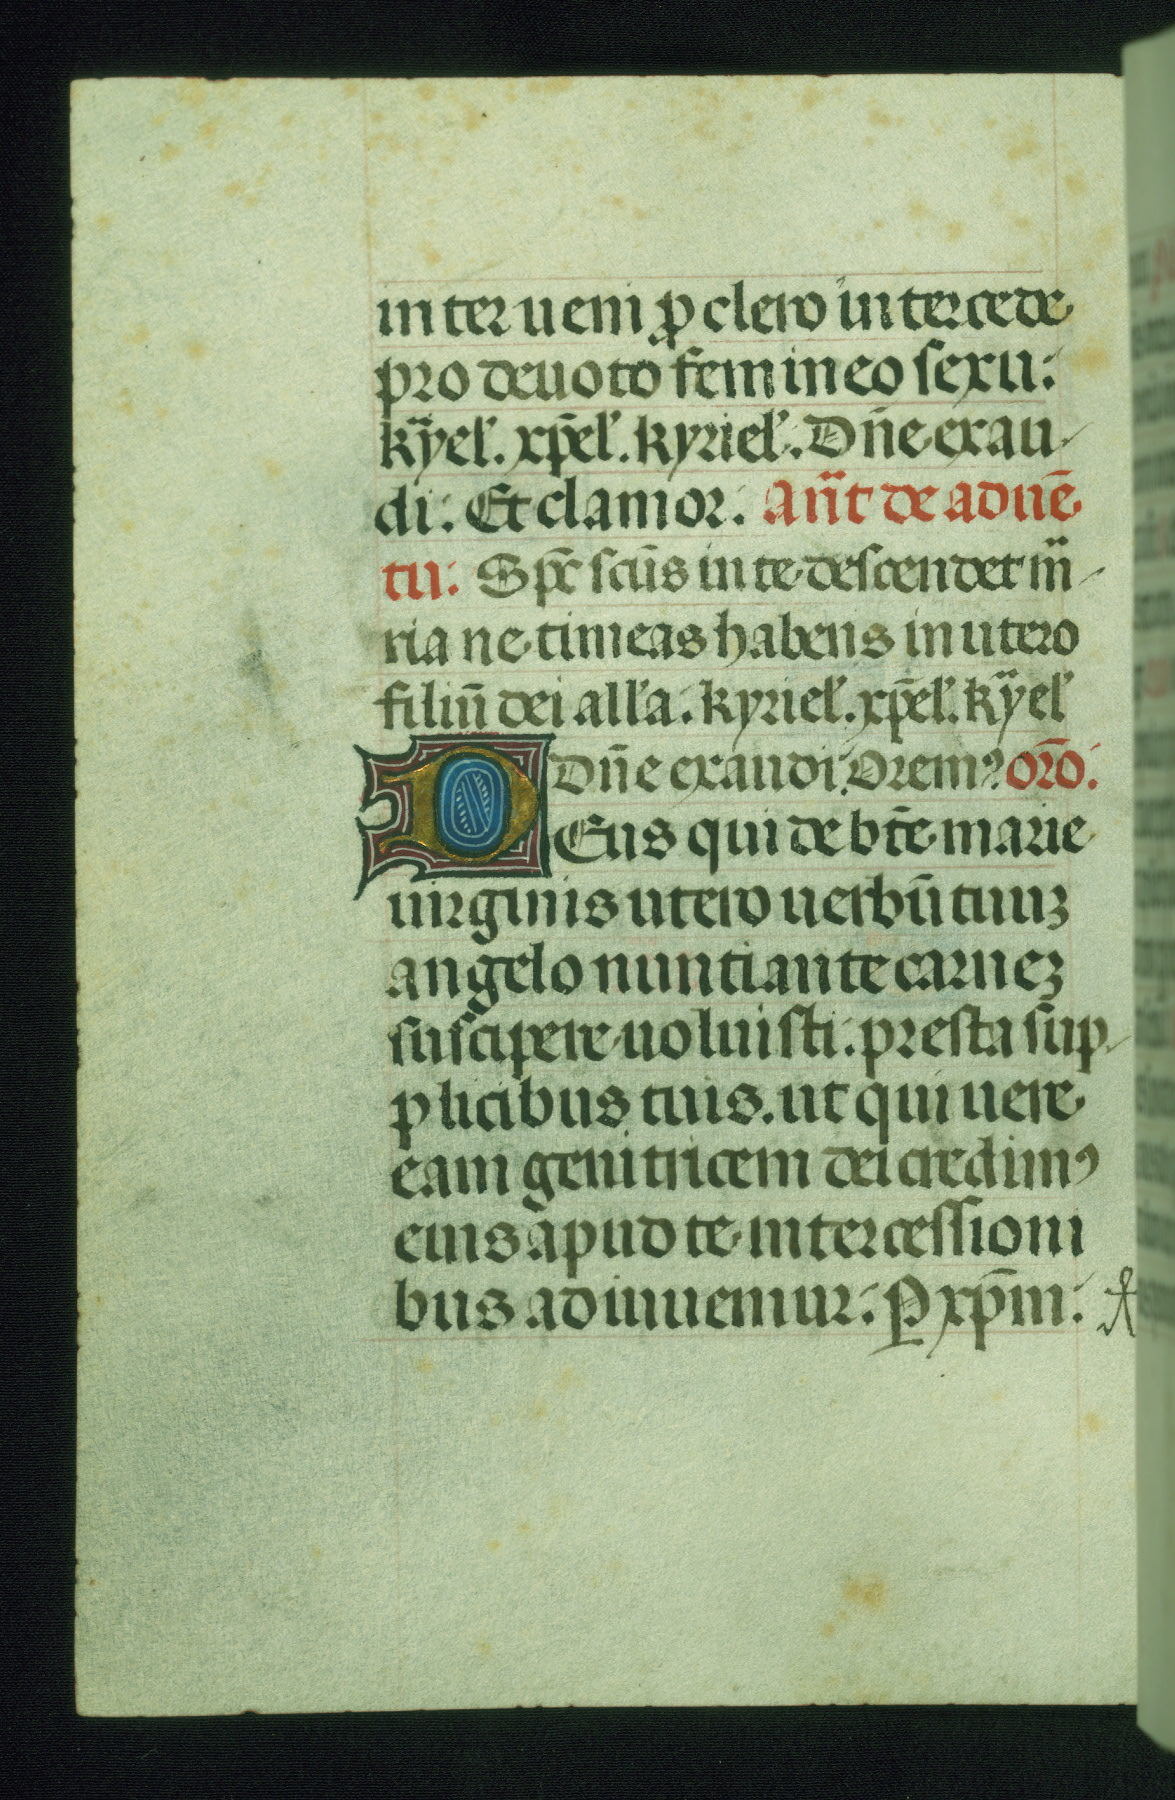 interueni p̃ clero intercede
pro deuoto femineo sexu:
kÿel'. xp̃el'. kyriel'. Dñe exau-
di: Et clamor: Añt de aduẽ
tu: Sp̃c sc̃us in te descendet m̃-
ria ne timeas habens in utero
filiũ dei all'a: kyriel'. xp̃el'. kÿel'
Dñe exaudi. Oremꝯ oro᷈.
DEus qui de bt̃e marie
uirginis utero uerbũ tuuꝫ
angelo nuntiante carneꝫ
suscipere uoluisti: presta sup-
plicibus tuis. ut qui uere
eam genitricem dei credimꝯ
eius apud te intercessioni
bus adiuuemur: P xp̃m: